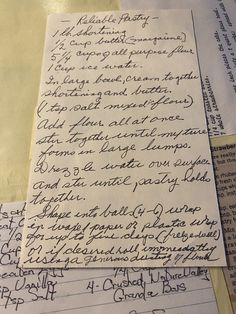 - Reliable Pastry -
1 lb shortening
1/2 cup butter (margarine)
5 1/4 cups all purpose flour
1 cup ice water.
In large bowl, cream together
shortening and butter.
(1 tsp. salt mixed flour)
Add flour all at once
stir together until mixture
forms in large lumps.
Drizzle water over surface
and stir until pastry holds
together.
Shape into balls (4-6) wrap
in waxed paper or plastic wrap
for up to five days (refrigerate)
or if desired roll immediately
using a generous dusting of flour
Vanilla
tsp Salt
4- Crushed Nature Valley
Granola Bars